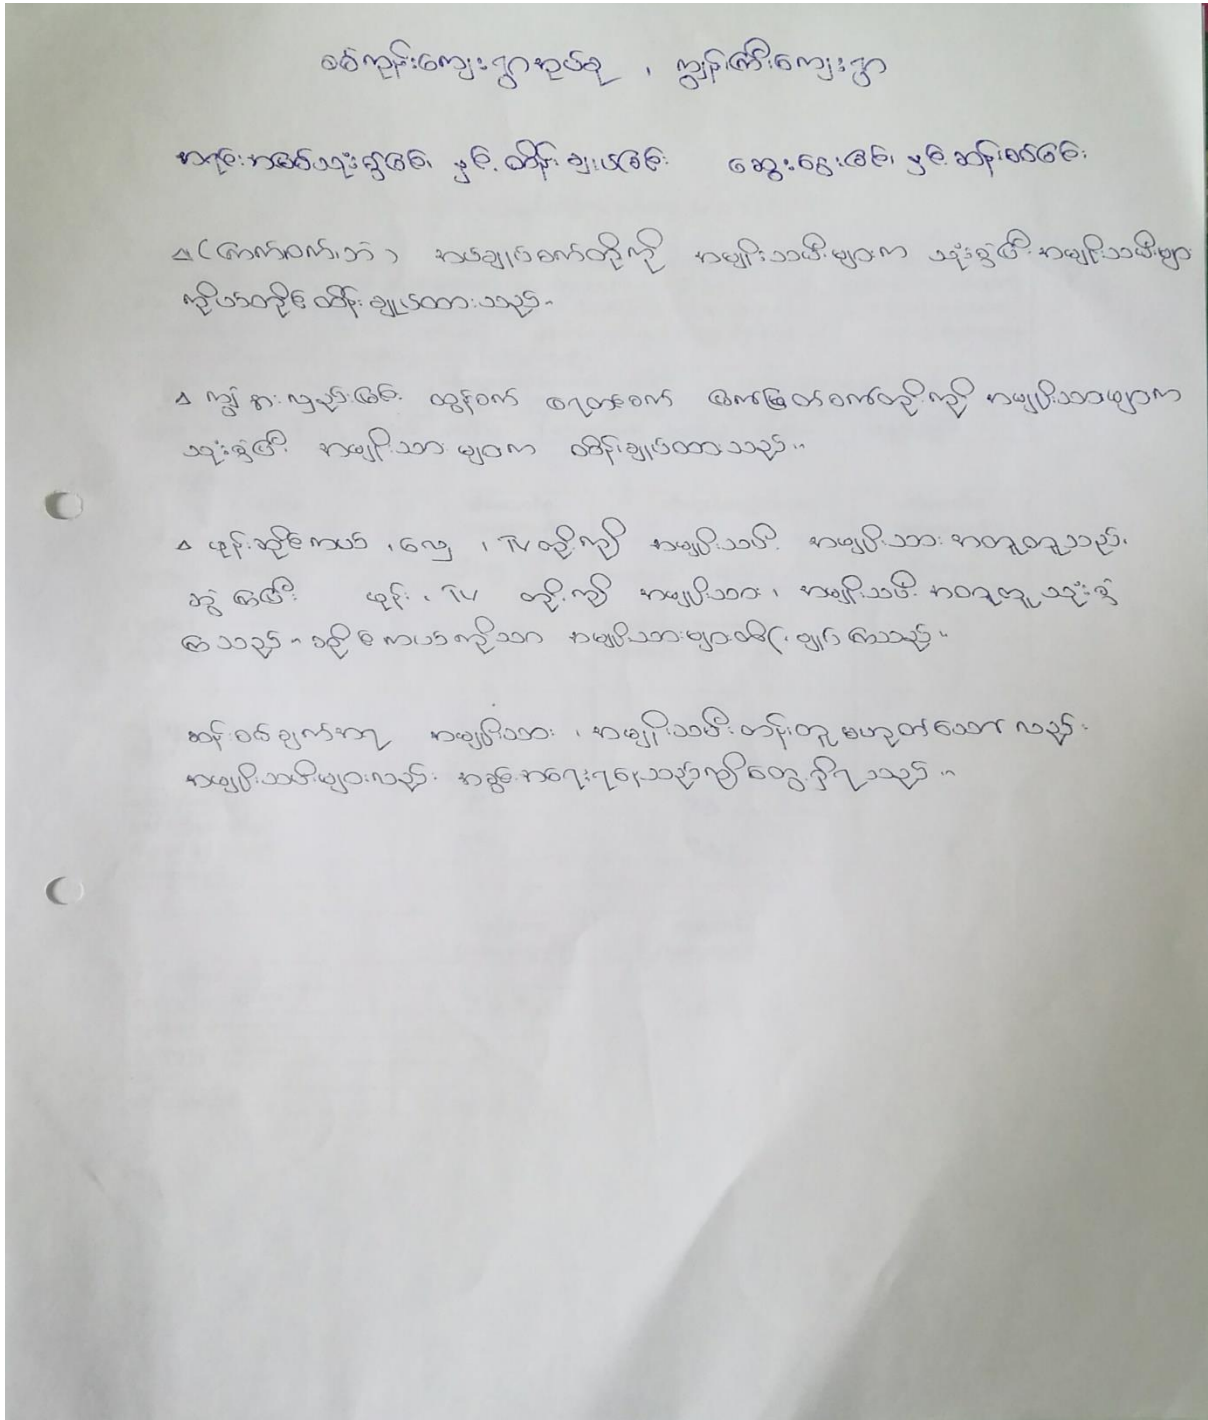 စစ်ကုန်းကျေးရွာအုပ်စု ၊ ကျွန်းကြီးကျေးရွာ
အရင်းအမြစ်သုံးစွဲခြင်း၊ နှင့် ထိန်းချုပ်ခြင်း ဆွေးနွေးခြင်း၊ နှင့် ဆန်းစစ်ခြင်း
△ ( ကောက်စက်၊ဘဲ ) အပ်ချုပ်စက်တို့ကို အမျိုးသမီးများက သုံးစွဲပြီး အမျိုးသမီးများ
ကိုယ်တိုင် ထိန်းချုပ်ထားသည်။
△ ကျွဲ နွား လှည်းခြင်း ထွန်စက် ရေတင်စက် မြက်ဖြတ်စက်တို့ကို အမျိုးသားများက
သုံးစွဲပြီး အမျိုးသားများက ထိန်းချုပ်ထားသည်။
△ ဖုန်း ဆိုင်ကယ် ၊ လှေ ၊ TV တို့ကို အမျိုးသမီး အမျိုးသား အတူတူသည်၊
ဆွဲကြပြီး ဖုန်း ၊ TV တို့ကို အမျိုးသား ၊ အမျိုးသမီး အတူတူ သုံးစွဲ
ကြသည်။ ဆိုင်ကယ်ကိုသာ အမျိုးသားများထိန်းချုပ်ကြသည်။
ဆန်းစစ်ချက်အရ အမျိုးသား ၊ အမျိုးသမီးတန်းတူ မဟုတ်သော်လည်း
အမျိုးသမီးများလည်း အခွင့်အရေးရနေသည်ကို တွေ့ရှိရသည်။